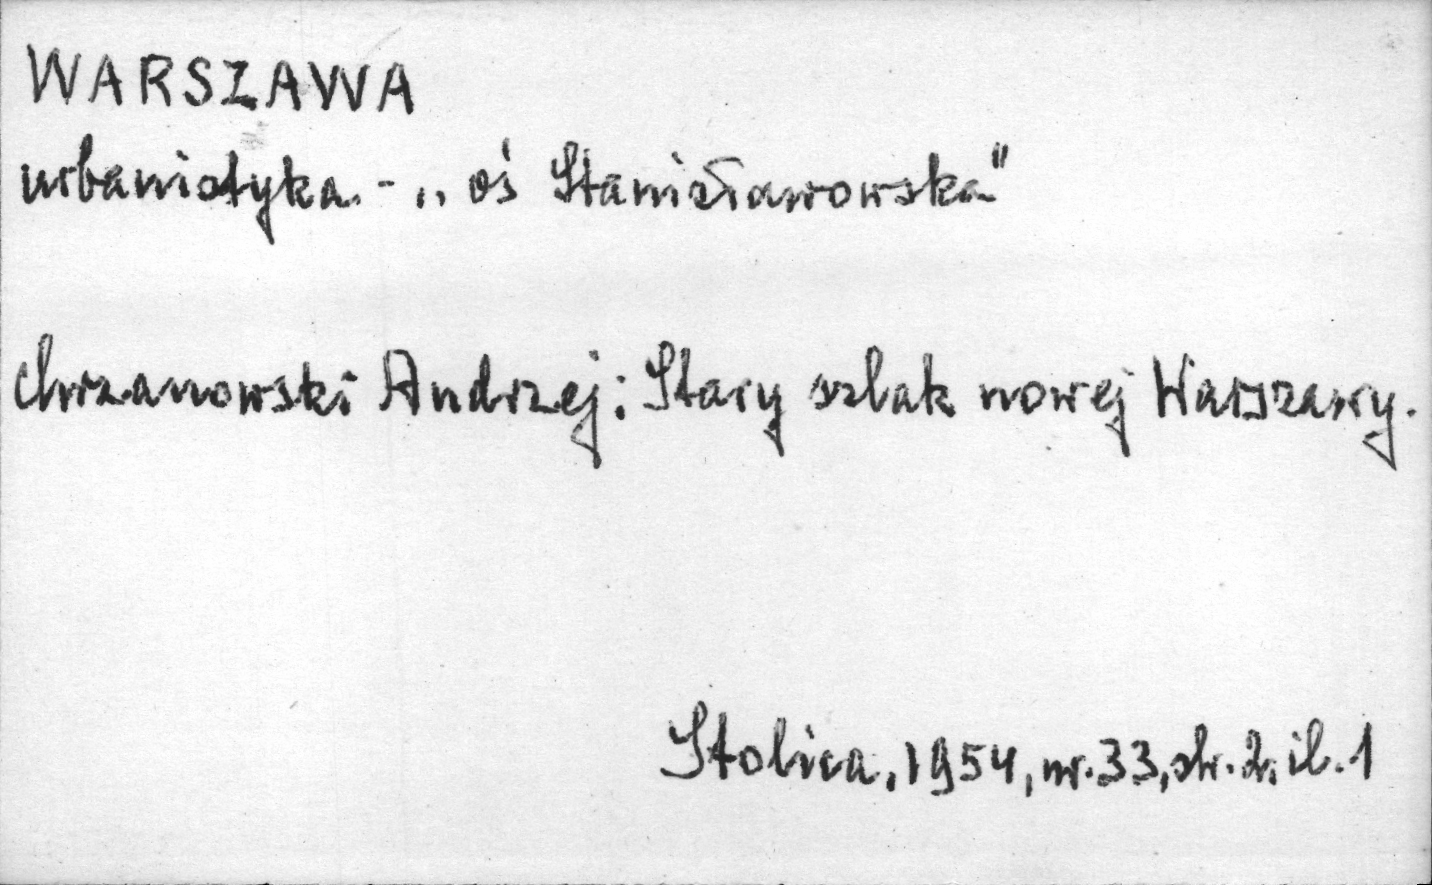 WARSZAWA
urbanistyka - „oś Stanisławowska"
Chrzanowski Andrzej: Stary szlak nowej Warszawy.
Stolica, 1954, nr. 33, str. 2, il. 1